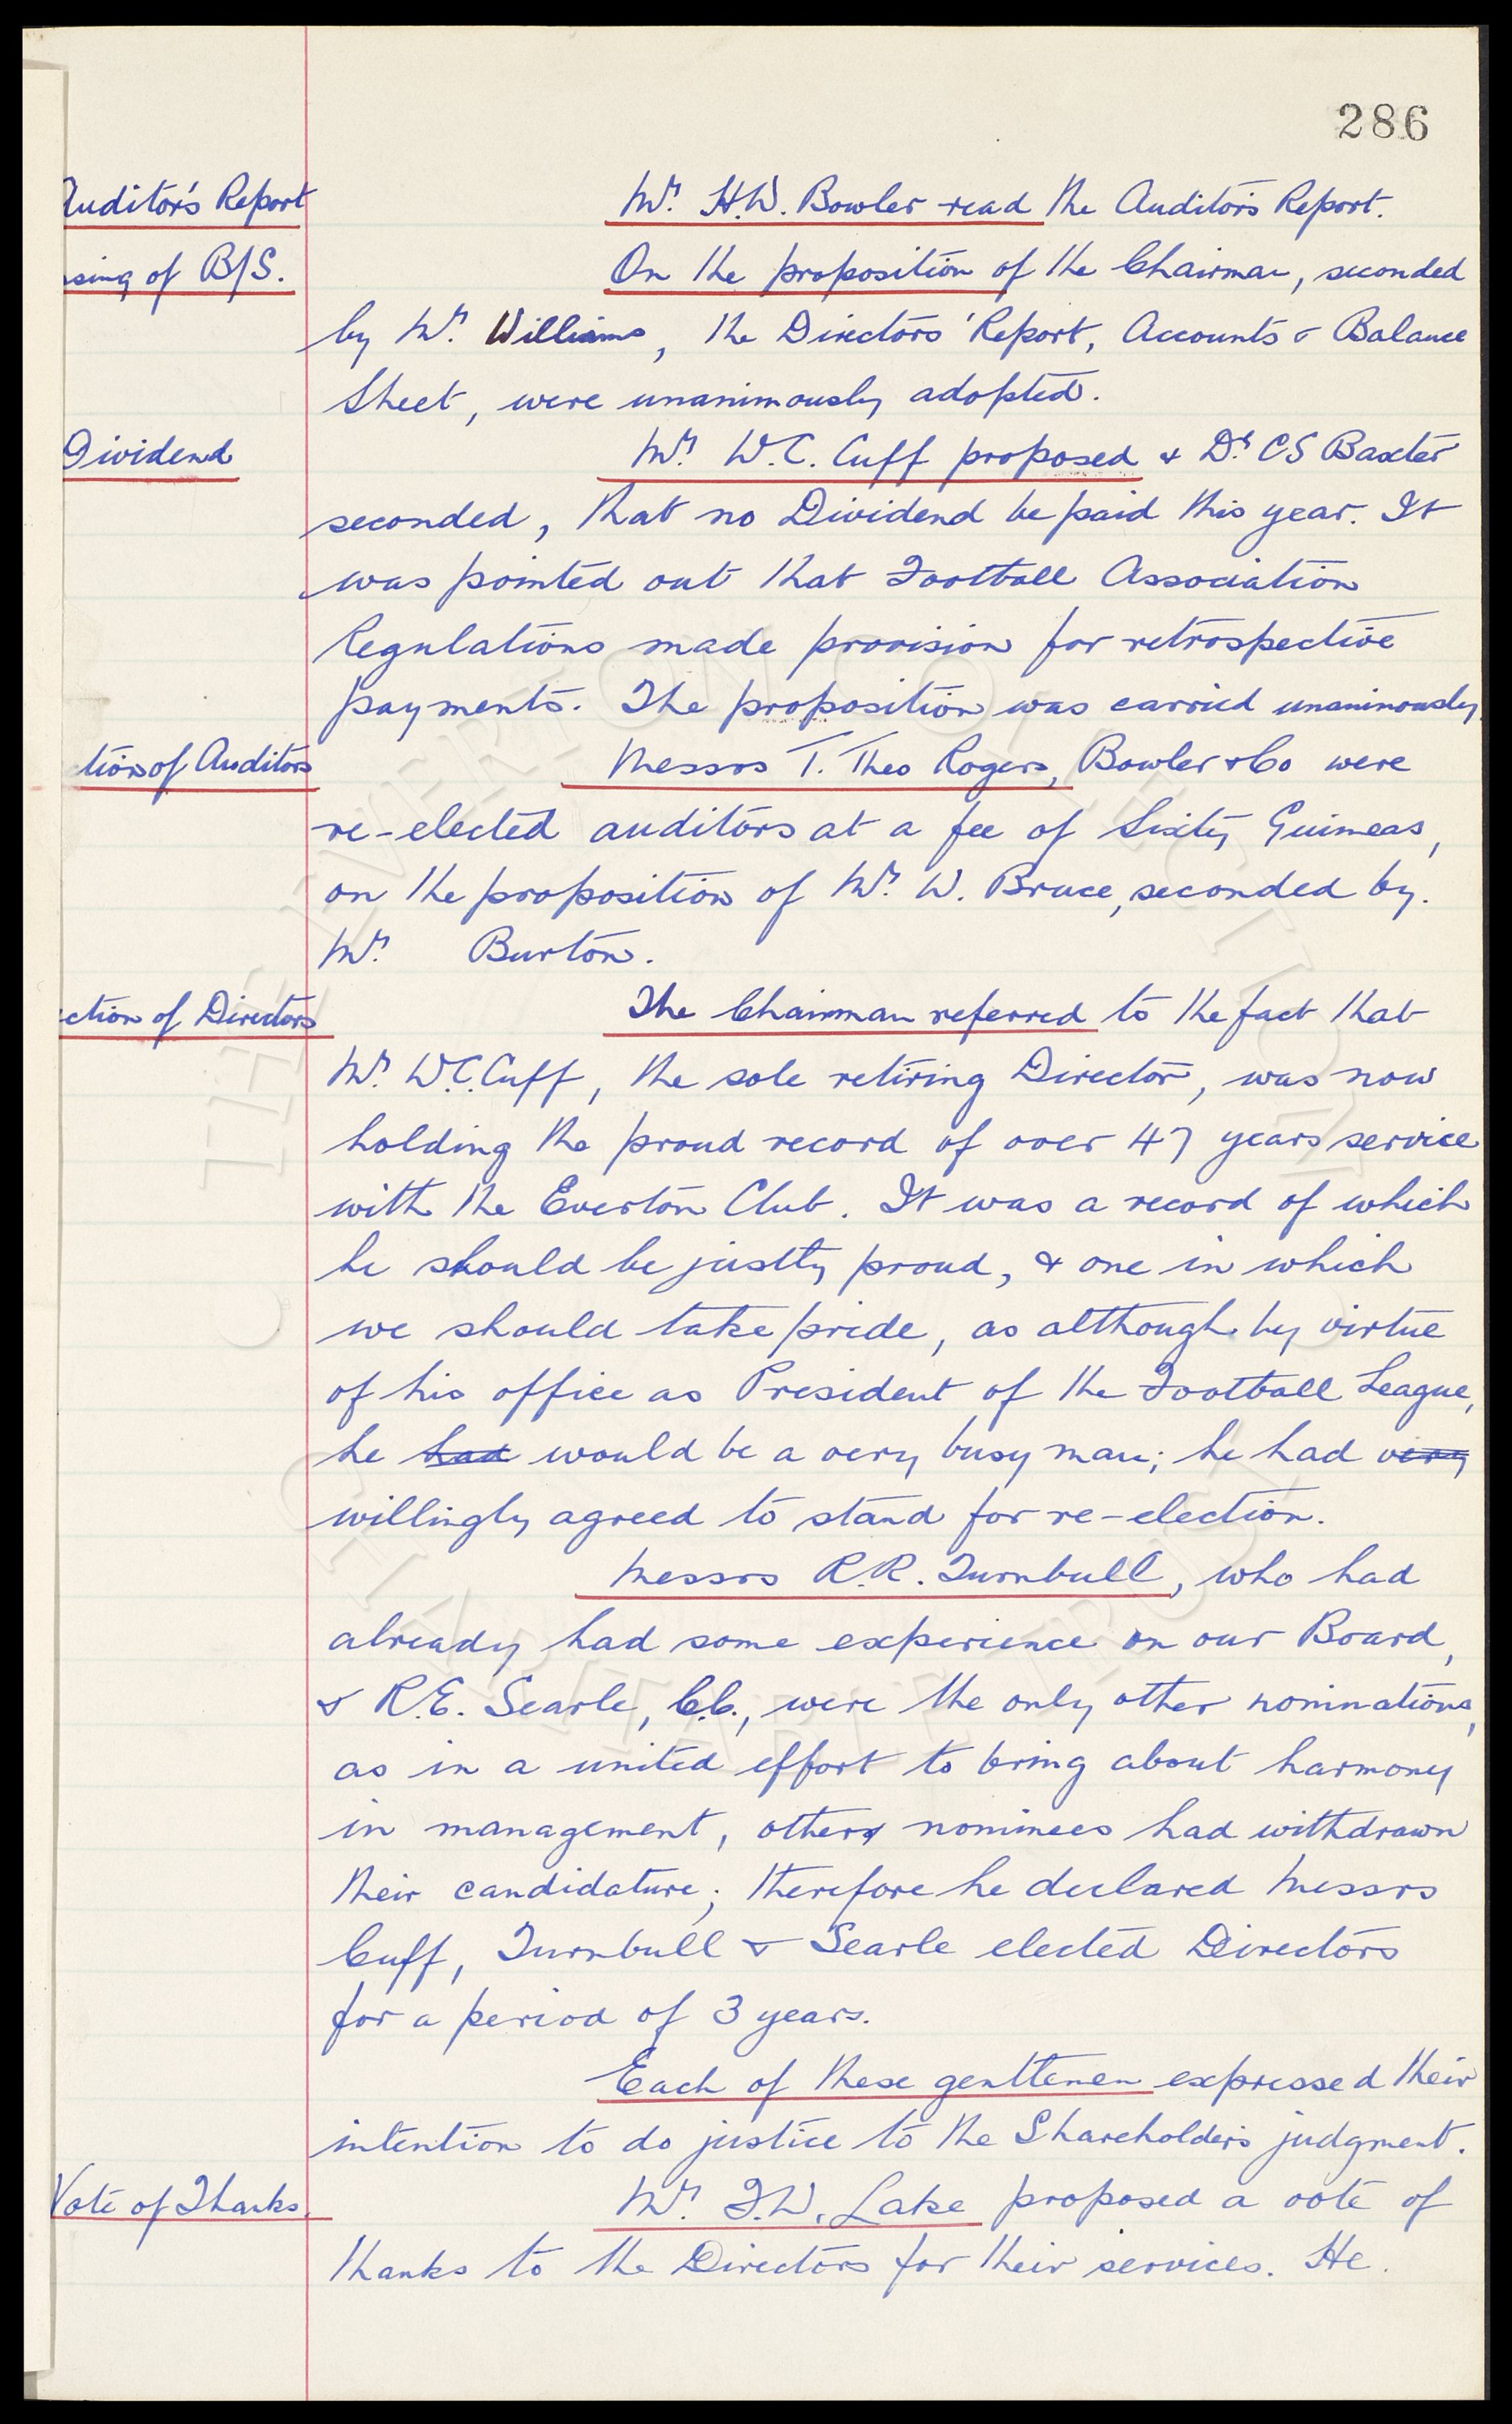 286
Auditor's Report
Mr. H.W. Bowler read the Auditor's Report.
sing of B/S.
On the proposition of the Chairman, seconded
by Mr. Williams, the Directors' Report, Accounts & Balance
Sheet, were unanimously adopted.
Dividend
Mr. W.C. Cuff proposed & Dr. CS Baxter
seconded, that no Dividend be paid this year. It
was pointed out that Football Association
Regulations made provision for retrospective
payments. The proposition was carried unanimously
tion of Auditors
Messrs T. Theo Rogers, Bowler & Co were
re-elected auditors at a fee of Sixty Guineas,
on the proposition of Mr. W. Bruce, seconded by.
Mr. Burton.
ction of Directors
The Chairman referred to the fact that
Mr. W.C. Cuff, the sole retiring Director, was now
holding the proud record of over 47 years service
with the Everton Club. It was a record of which
he should be justly proud, & one in which
we should take pride, as although by virtue
of his office as President of the Football League,
he had would be a very busy man; he had very
willingly agreed to stand for re-election.
Messrs R.R. Turnbull, who had
already had some experience on our Board,
& R.E. Searle, C.C., were the only other nominations,
as in a united effort to bring about harmony
in management, other nominees had withdrawn
their candidature; therefore he declared Messrs
Cuff, Turnbull & Searle elected Directors
for a period of 3 years.
Each of these gentlemen expressed their
intention to do justice to the Shareholders judgment.
Vote of Thanks.
Mr. F.W. Lake proposed a vote of
thanks to the Directors for their services. He
THE EVERTON COLLECTION
CHARITABLE TRUST